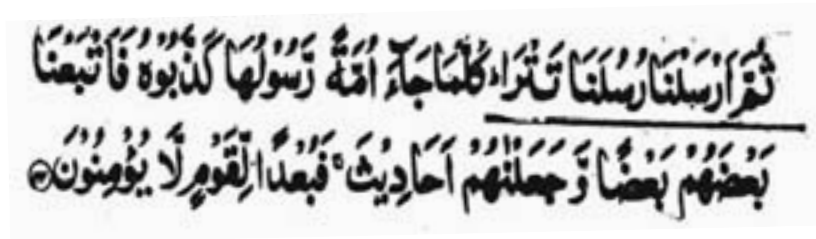 ثُمَّ اَرْسَلْنَا رُسُلَنَا تَتْرَاء كُلَّمَا جَآءَ اُمَّةً رَّسُوْلُهَا كَذَّبُوْهُ فَاَتْبَعْنَا
بَعْضَهُمْ بَعْضًا وَّجَعَلْنٰهُمْ اَحَادِيْثَ ۚ فَبُعْدًا لِّقَوْمٍ لَّا يُؤْمِنُوْنَ